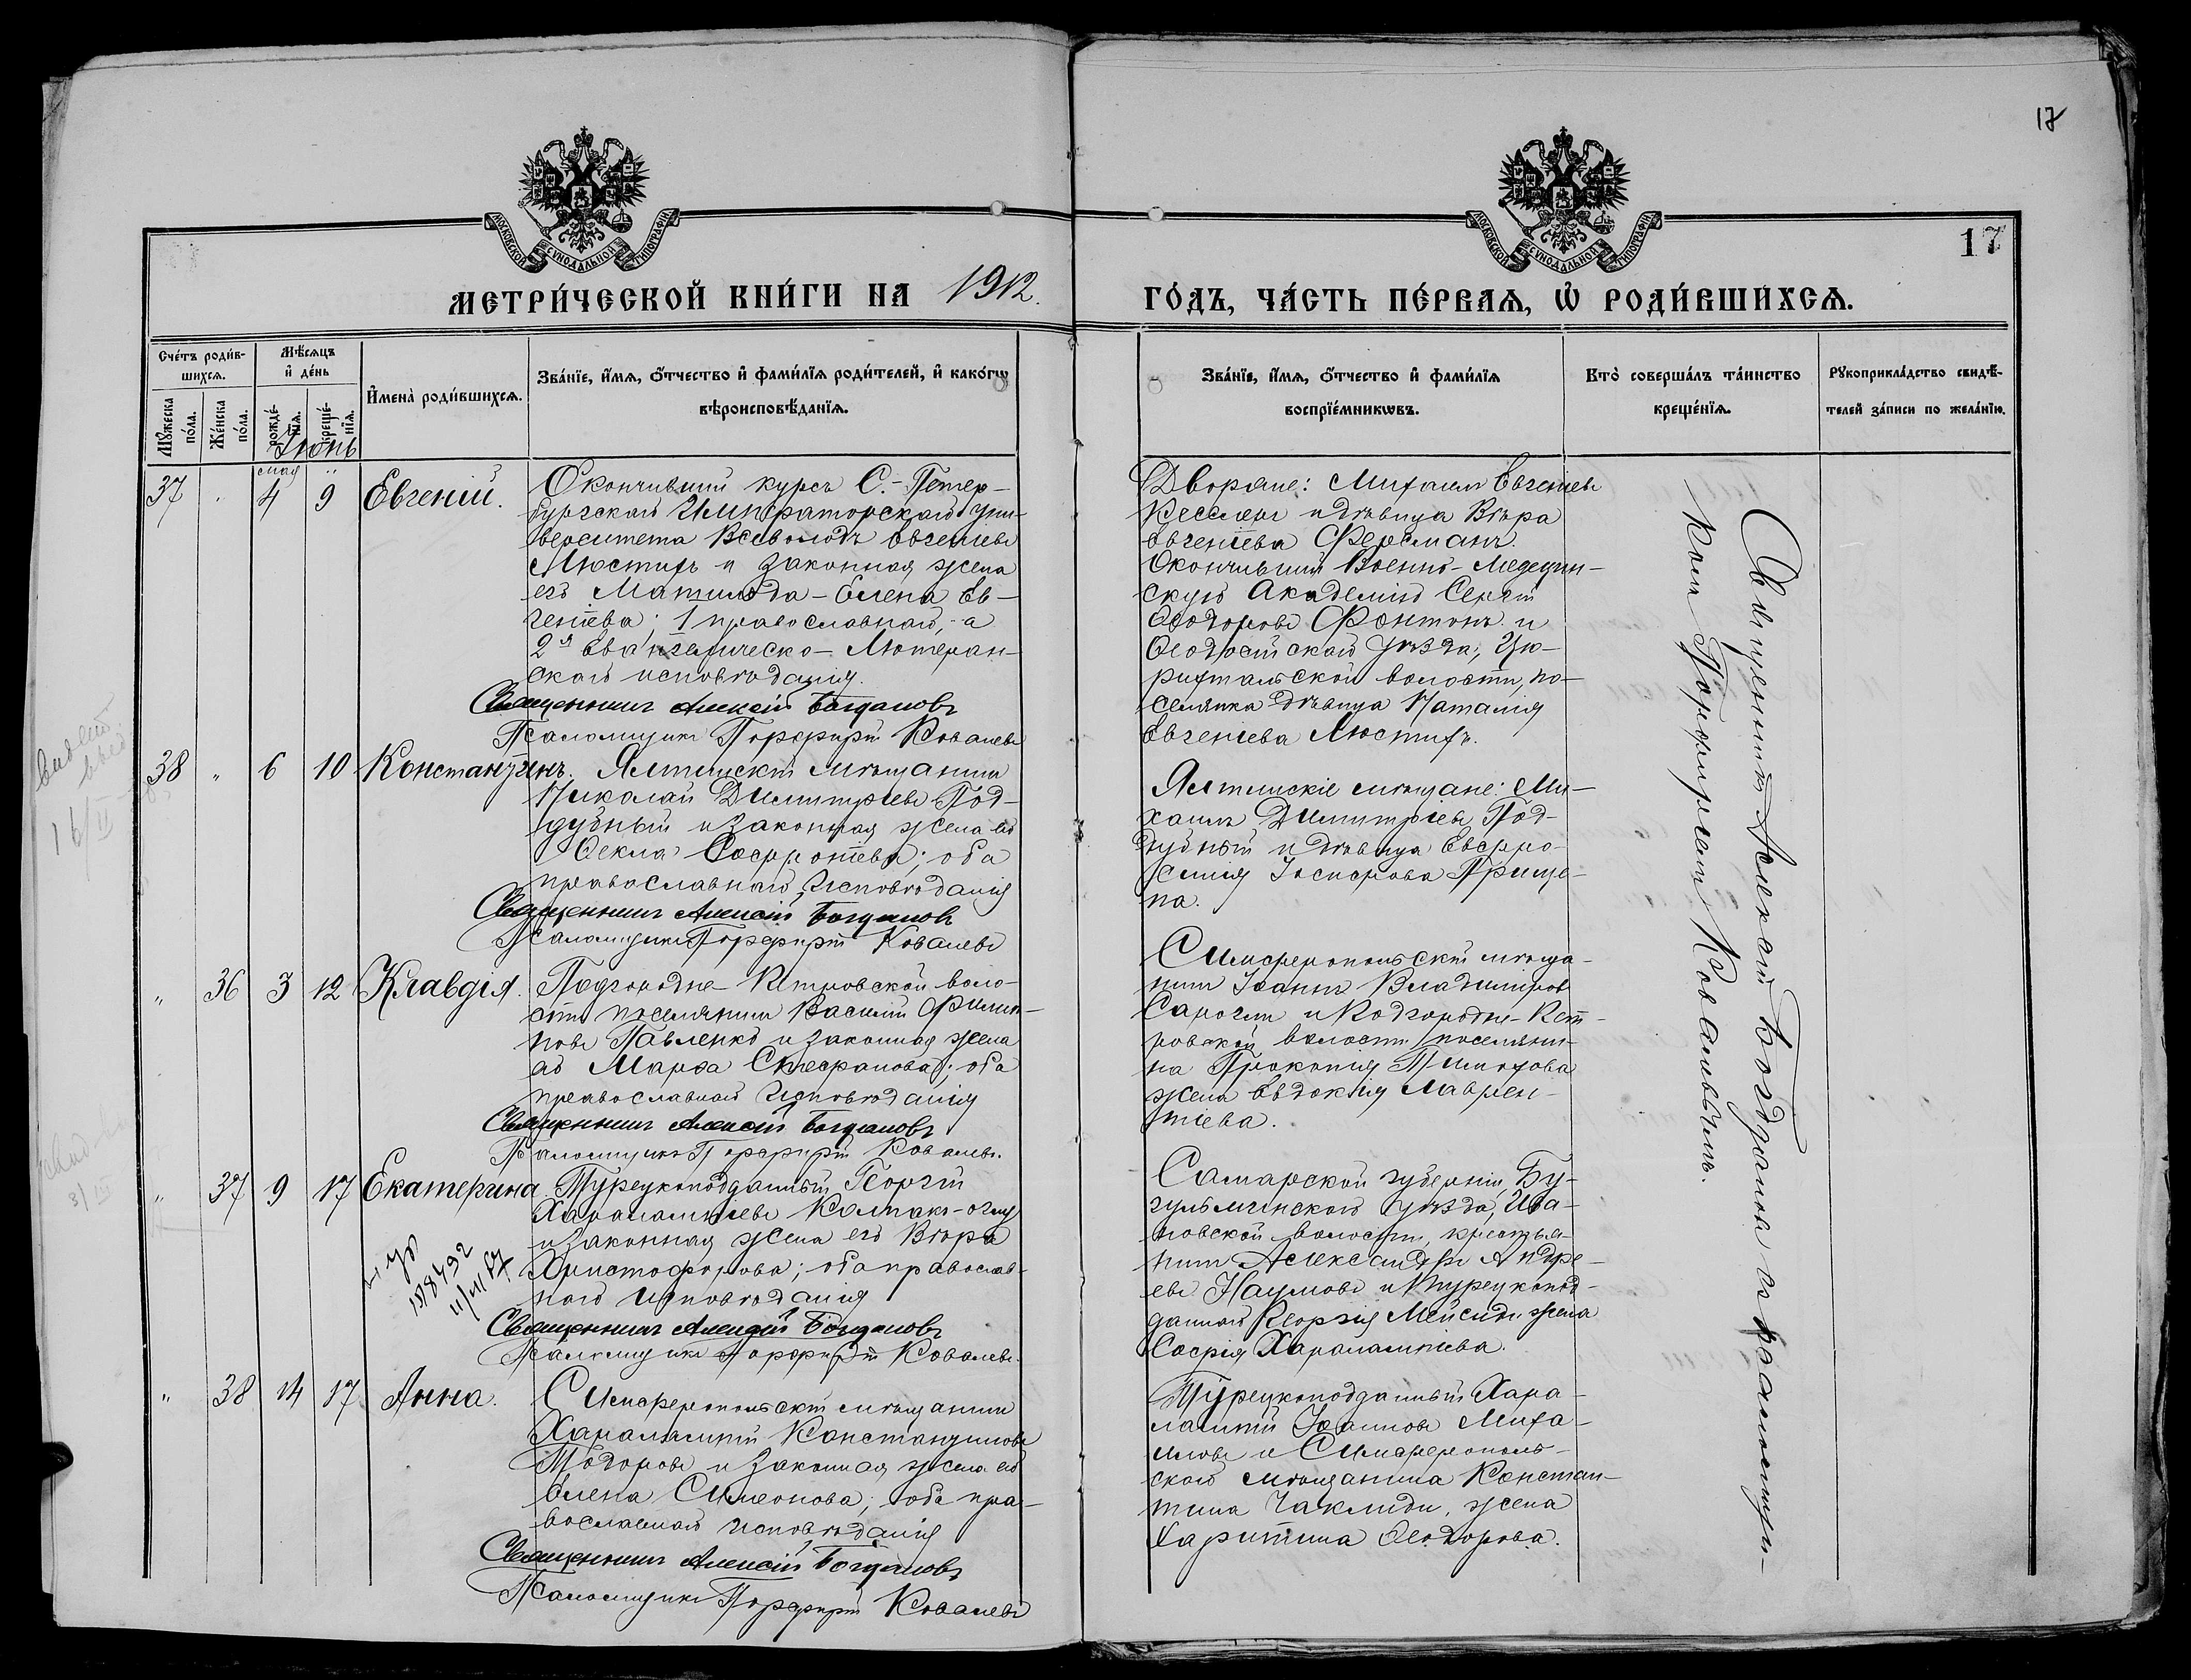 17
МОСКОВСКОЙ СѴНОДАЛЬНОЙ ТИПОГРАФІИ
МОСКОВСКОЙ СѴНОДАЛЬНОЙ ТИПОГРАФІИ
17
МЕТРИ́ЧЕСКОЙ КНИ́ГИ НА 1912.
ГО́ДЪ, ЧА́СТЬ ПЕ́РВАѦ, Ѡ҆ РОДИ́ВШИХСѦ.
Сче́тъ роди́в-
шихсѧ.
Мꙋ́жеска по́ла.
Же́нска по́ла.
Мѣ́сѧцъ
и҆ де́нь
рожде́-
нїѧ.
креще́-
нїѧ.
И҆мена̀ роди́вшихсѧ.
Зва́нїе, и҆́мѧ, ѻ҆́тчество и҆ фами́лїѧ роди́телей, и҆ како́гѡ
вѣроисповѣ́данїѧ.
Зва́нїе, и҆́мѧ, ѻ҆́тчество и҆ фами́лїѧ
воспрїе́мникѡвъ.
Кто̀ соверша́лъ та́инство
креще́нїѧ.
Рꙋкоприкла́дство свидѣ́-
телей за́писи по жела́нїю.
Іюнь
мая "
37 " 4 9 Евгеній.
Окончившій курсъ С.-Петер-
бургскаго Императорскаго уни-
верситета Всеволодъ Евгеніевъ
Люстихъ и законная жена
его Матильда-Елена Ев-
геніева; 1 православнаго, а
2я Евангелическо-Лютеран-
скаго исповѣданія.
Священникъ Алексій Богдановъ
Псаломщикъ Порфирій Ковалевъ
Дворяне: Михаилъ Евгеніевъ
Кесслеръ и дѣвица Вѣра
Евгеніева Ферсманъ.
Окончившій Военно-Медецин-
скую Академію Сергій
Ѳеодоровъ Фонтонъ и
Ѳеодосійскаго уѣзда, Цю-
рихтальской волости, по-
селянка дѣвица Наталія
Евгеніева Люстихъ.
38 " 6 10 Константинъ.
Ялтинскій мѣщанинъ
Николай Димитріевъ Под-
дубный и законная жена его
Ѳекла Софронтіева; оба
православнаго исповѣданія
Священникъ Алексій Богдановъ
Псаломщикъ Порфирій Ковалевъ
Ялтинскіе мѣщане: Ми-
хаилъ Димитріевъ Под-
дубный и дѣвица Евфро-
синія Іосифова Прище-
па.
" 36 3 12 Клавдія.
Подгородне-Петровской воло-
сти поселянинъ Василій Филип-
повъ Павленко и законная жена
его Марѳа Стефанова; оба
православнаго исповѣданія
Священникъ Алексій Богдановъ
Псаломщикъ Порфирій Ковалевъ.
Симферопольскій мѣща-
нинъ Іоаннъ Владиміровъ
и Подгородне-Пет-
ровской волости поселяни-
на Прокопія
жена Евдокія Лаврен-
тіева.
" 37 9 17 Екатерина.
Турецкоподданный Георгій
Харалампіевъ Колпакъ-оглу
и законная жена его Вѣра
Христофорова; оба православ-
наго исповѣданія
Священникъ Алексій Богдановъ
Псаломщикъ Порфирій Ковалевъ.
Самарской губерніи, Бу-
гульминскаго уѣзда, Ива-
новской волости, крестья-
нинъ Александръ Андре-
евъ Наумовъ и турецкопод-
даннаго Георгія жена
Софія Харалампіева.
" 38 14 17 Анна.
Симферопольскій мѣщанинъ
Харалампій Константиновъ
Тодоровъ и законная жена его
Елена Симеонова; оба пра-
вославнаго исповѣданія
Священникъ Алексій Богдановъ
Псаломщикъ Порфирій Ковалевъ
Турецкоподданный Хара-
лампій Іоанновъ Миха-
иловъ и Симферополь-
скаго мѣщанина Констан-
тина Чаклиди, жена
Харитина Ѳеодорова.
Священникъ Алексій Богдановъ съ псаломщи-
комъ Порфиріемъ Ковалевымъ.